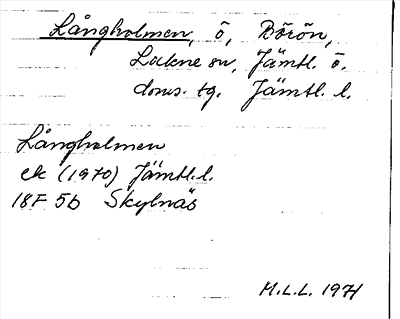 Långholmen, ö, Rörön,
Lakne sn, Jämtl. ö.
doms. tg. Jämtl. l.
Långholmen
ek (1970) Jämtl. l.
18F 5b Skylnäs
M.L.L. 1971